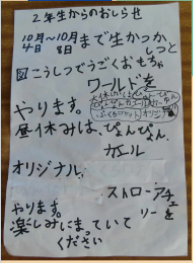 ２年生からのおしらせ
10月4日～10月8日まで生かつか
しつと
図こうしつでうごくおもちゃ
ワールドを
やります。
昼休みは、ぴょんぴょん
カエル
オリジナル
ストローアーチェ
リーを
やります。
楽しみにまっていて
ください